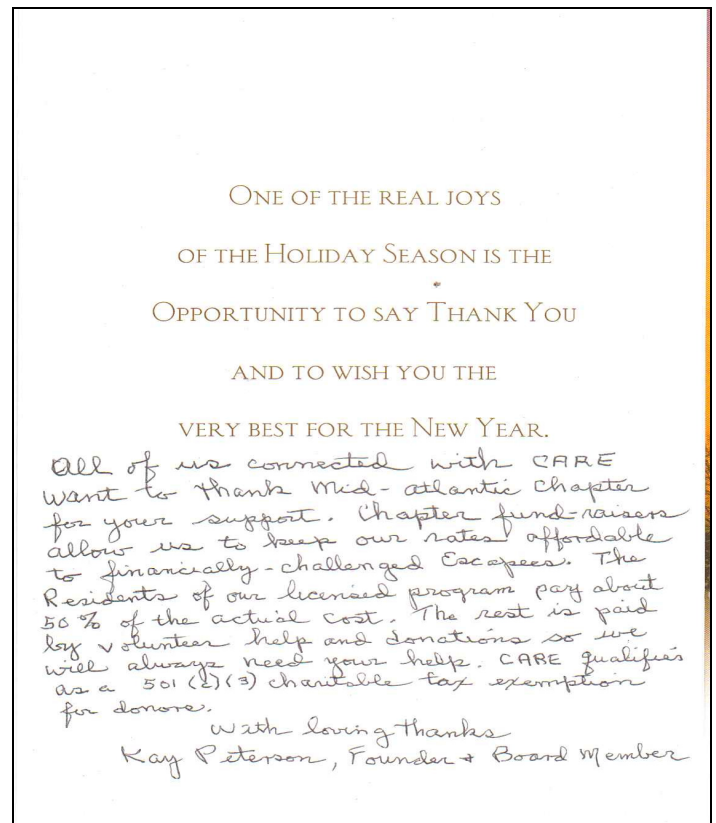 ONE OF THE REAL JOYS
OF THE HOLIDAY SEASON IS THE
OPPORTUNITY TO SAY THANK YOU
AND TO WISH YOU THE
VERY BEST FOR THE NEW YEAR.
All of us connected with CARE
want to thank Mid-atlantic Chapter
for your support. Chapter fund-raisers
allow us to keep our rates affordable
to financially-challenged Escapees. The
Residents of our licensed program pay about
50% of the actual cost. The rest is paid
by volunteer help and donations so we
will always need your help. CARE qualifies
as a 501(c)(3) charitable tax exemption
for donors.
With loving thanks
Kay Peterson, Founder + Board Member